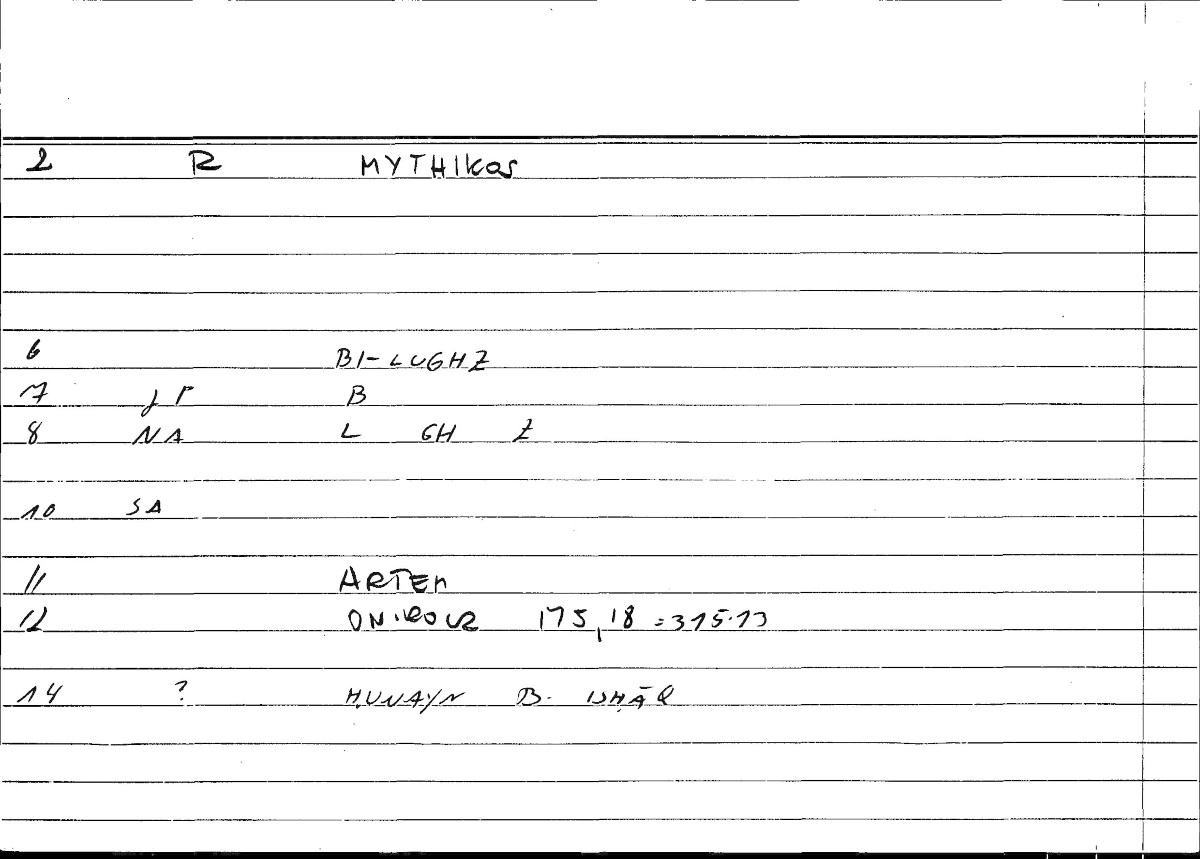 2 R MYTHIKOS
6 BI-LUGHZ
7 JP B
8 NA L GH Z
10 SA
11 ARTEM
12 ONIROCR 175,18 = 315.13
14 ? ḤUNAYN B. ISḤĀQ